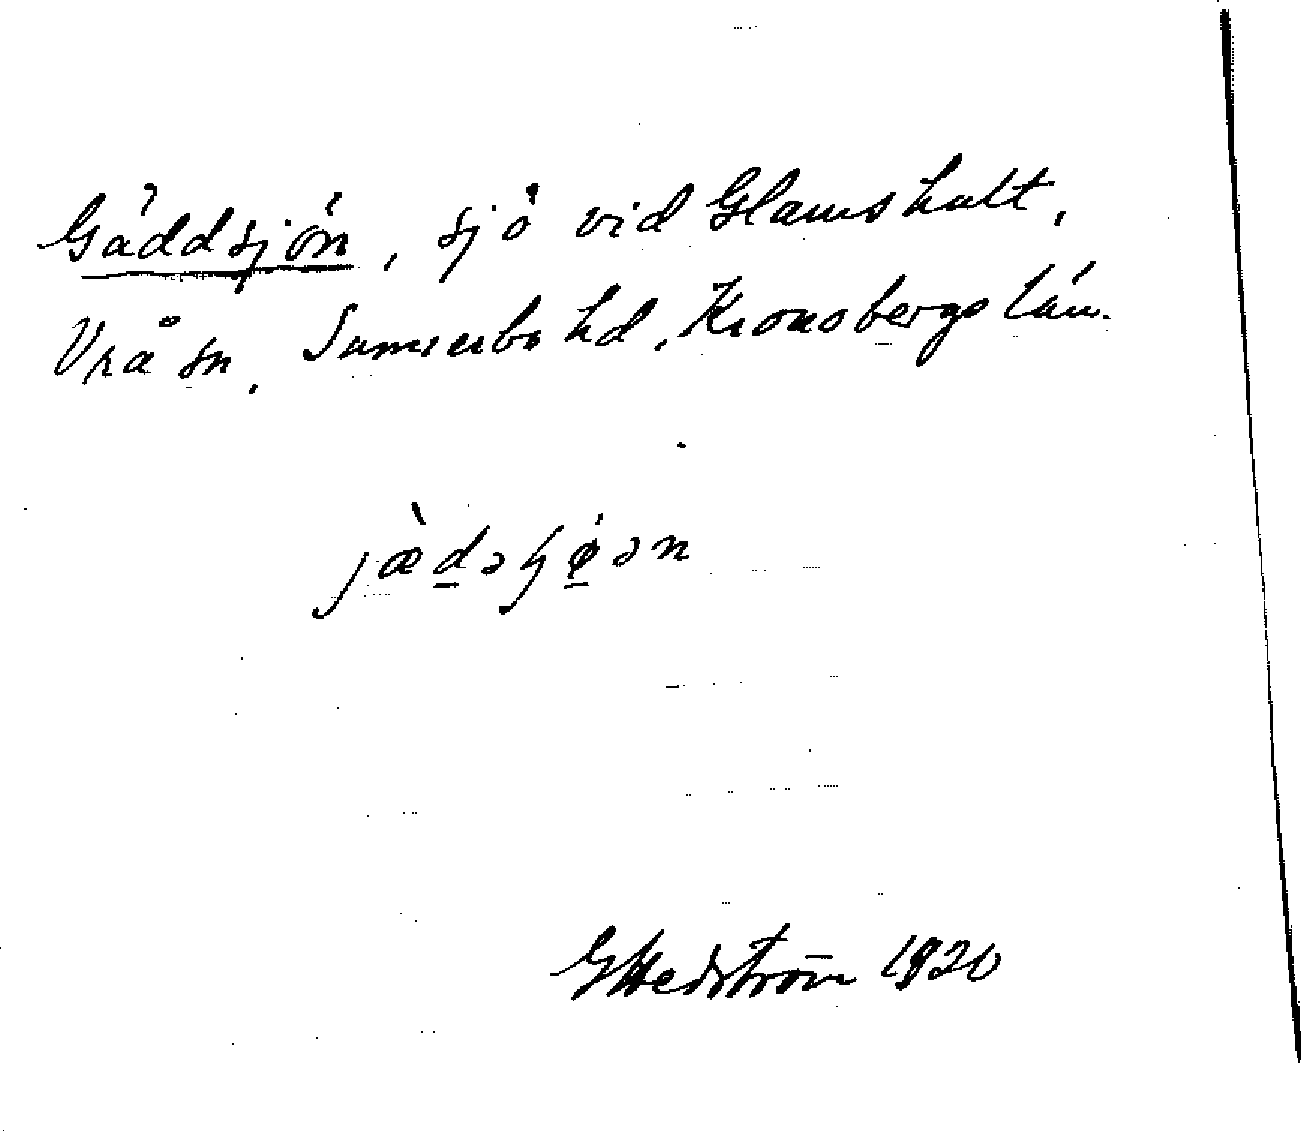 Gäddsjön, sjö vid Glamshult,
Vrå sn, Sunnerbo hd, Kronobergs län.
G Hedström 1920